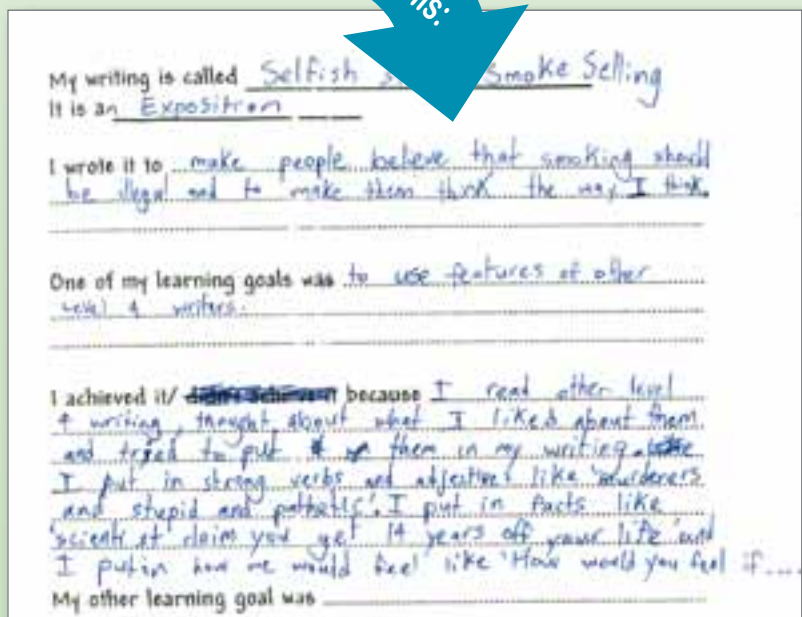 ns:
My writing is called Selfish Smoke Selling
It is an Exposition
I wrote it to make people believe that smoking should
be illegal and to make them think the way I think.
One of my learning goals was to use features of other
level 4 writers.
I achieved it/ didn't achieve it because I read other level
4 writing, thought about what I liked about them
and tried to put them in my writing.
I put in strong verbs and adjectives like 'murderers
and stupid and pathetic'. I put in facts like
'scientist claim you get 14 years off your life' and
I put in how we would feel like 'How would you feel if....
My other learning goal was